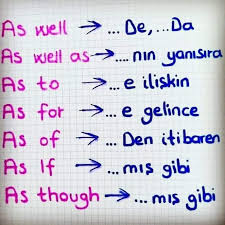 As well → ... De, ... Da
As well as → .... nın yanısıra
As to → ... e ilişkin
As for → ... e gelince
As of → ... Den itibaren
As If → ... mış gibi
As though → ... mış gibi